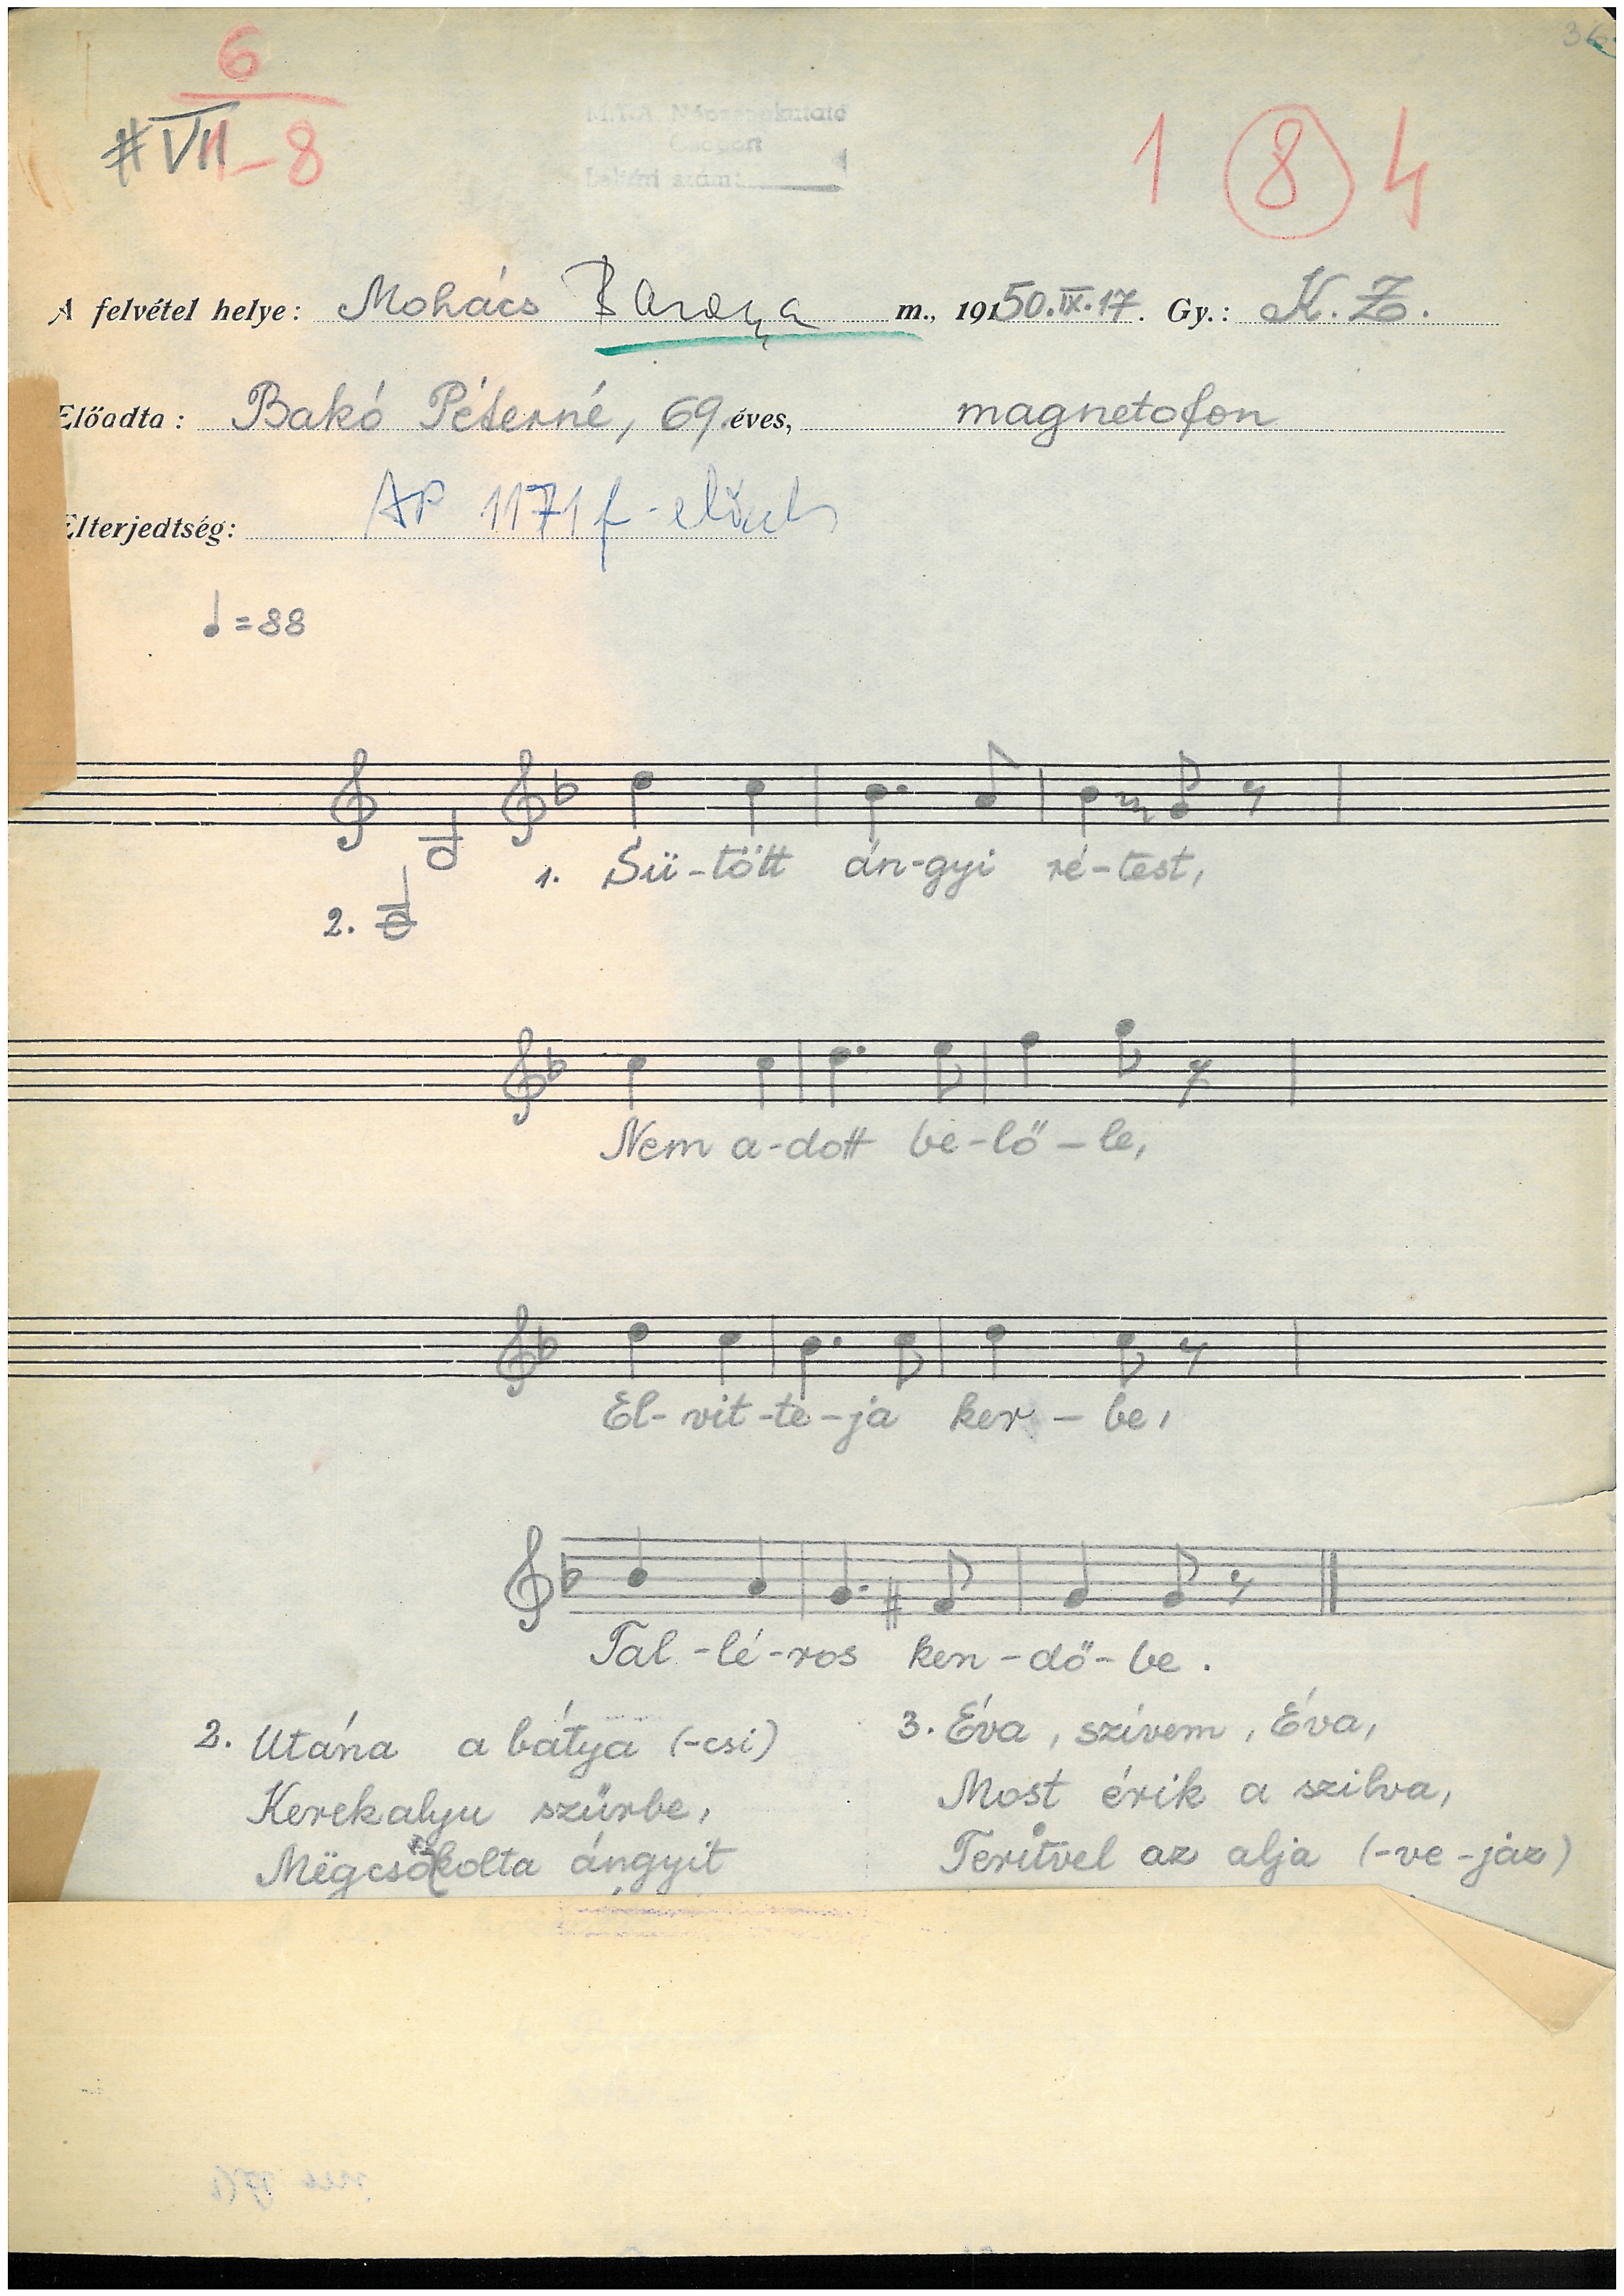 36
6
# VII 1-8
M.T.A. Népzenekutató
Csoport
Leltári szám:
1 8 4
A felvétel helye: Mohács Baranya m., 19150.IX.17. Gy.: K. Z.
Előadta: Bakó Péterné, 69 éves, magnetofon
Elterjedtség: AP 1171 f
♩ = 88
1. Sü-tött án-gyi ré-test,
2.
Nem a-dott be-lő-le,
El-vit-te-ja ker-be,
Tal-lé-ros ken-dő-be.
2. Utána a bátya (-csi)
Kerekalyu szűrbe,
Mëgcsókolta ángyit
3. Éva, szívem, Éva,
Most érik a szilva,
Terítvel az alja (-ve-jaz)